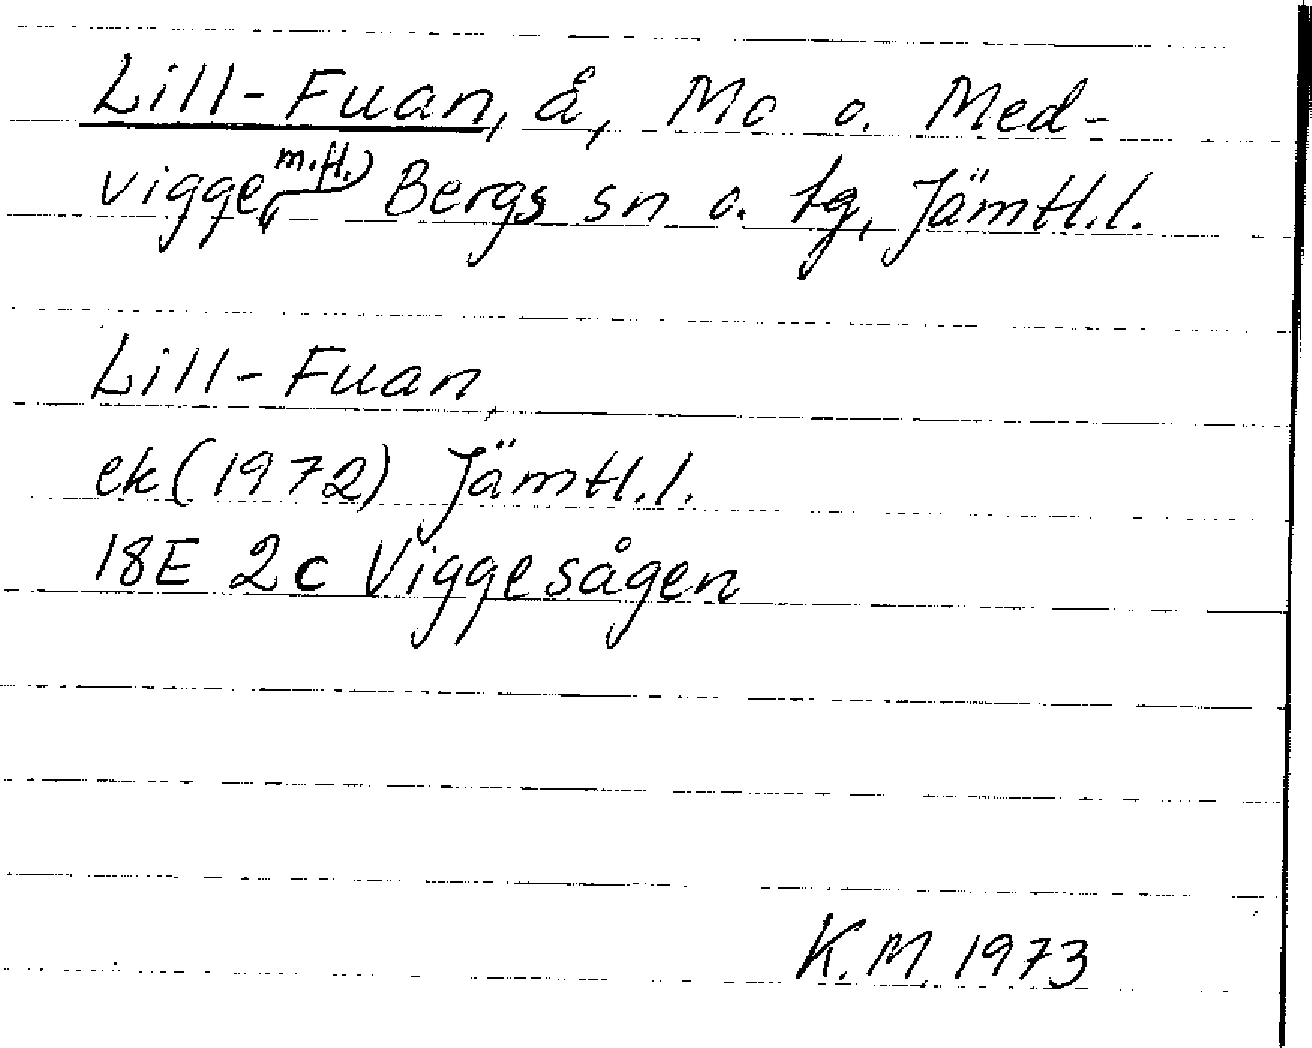 Lill-Fuan, å, Mo o. Med-
vigge m.fl., Bergs sn o. tg, Jämtl.l.
Lill-Fuan,
ek (1972) Jämtl.l.
18E 2c Viggesågen
K.M. 1973